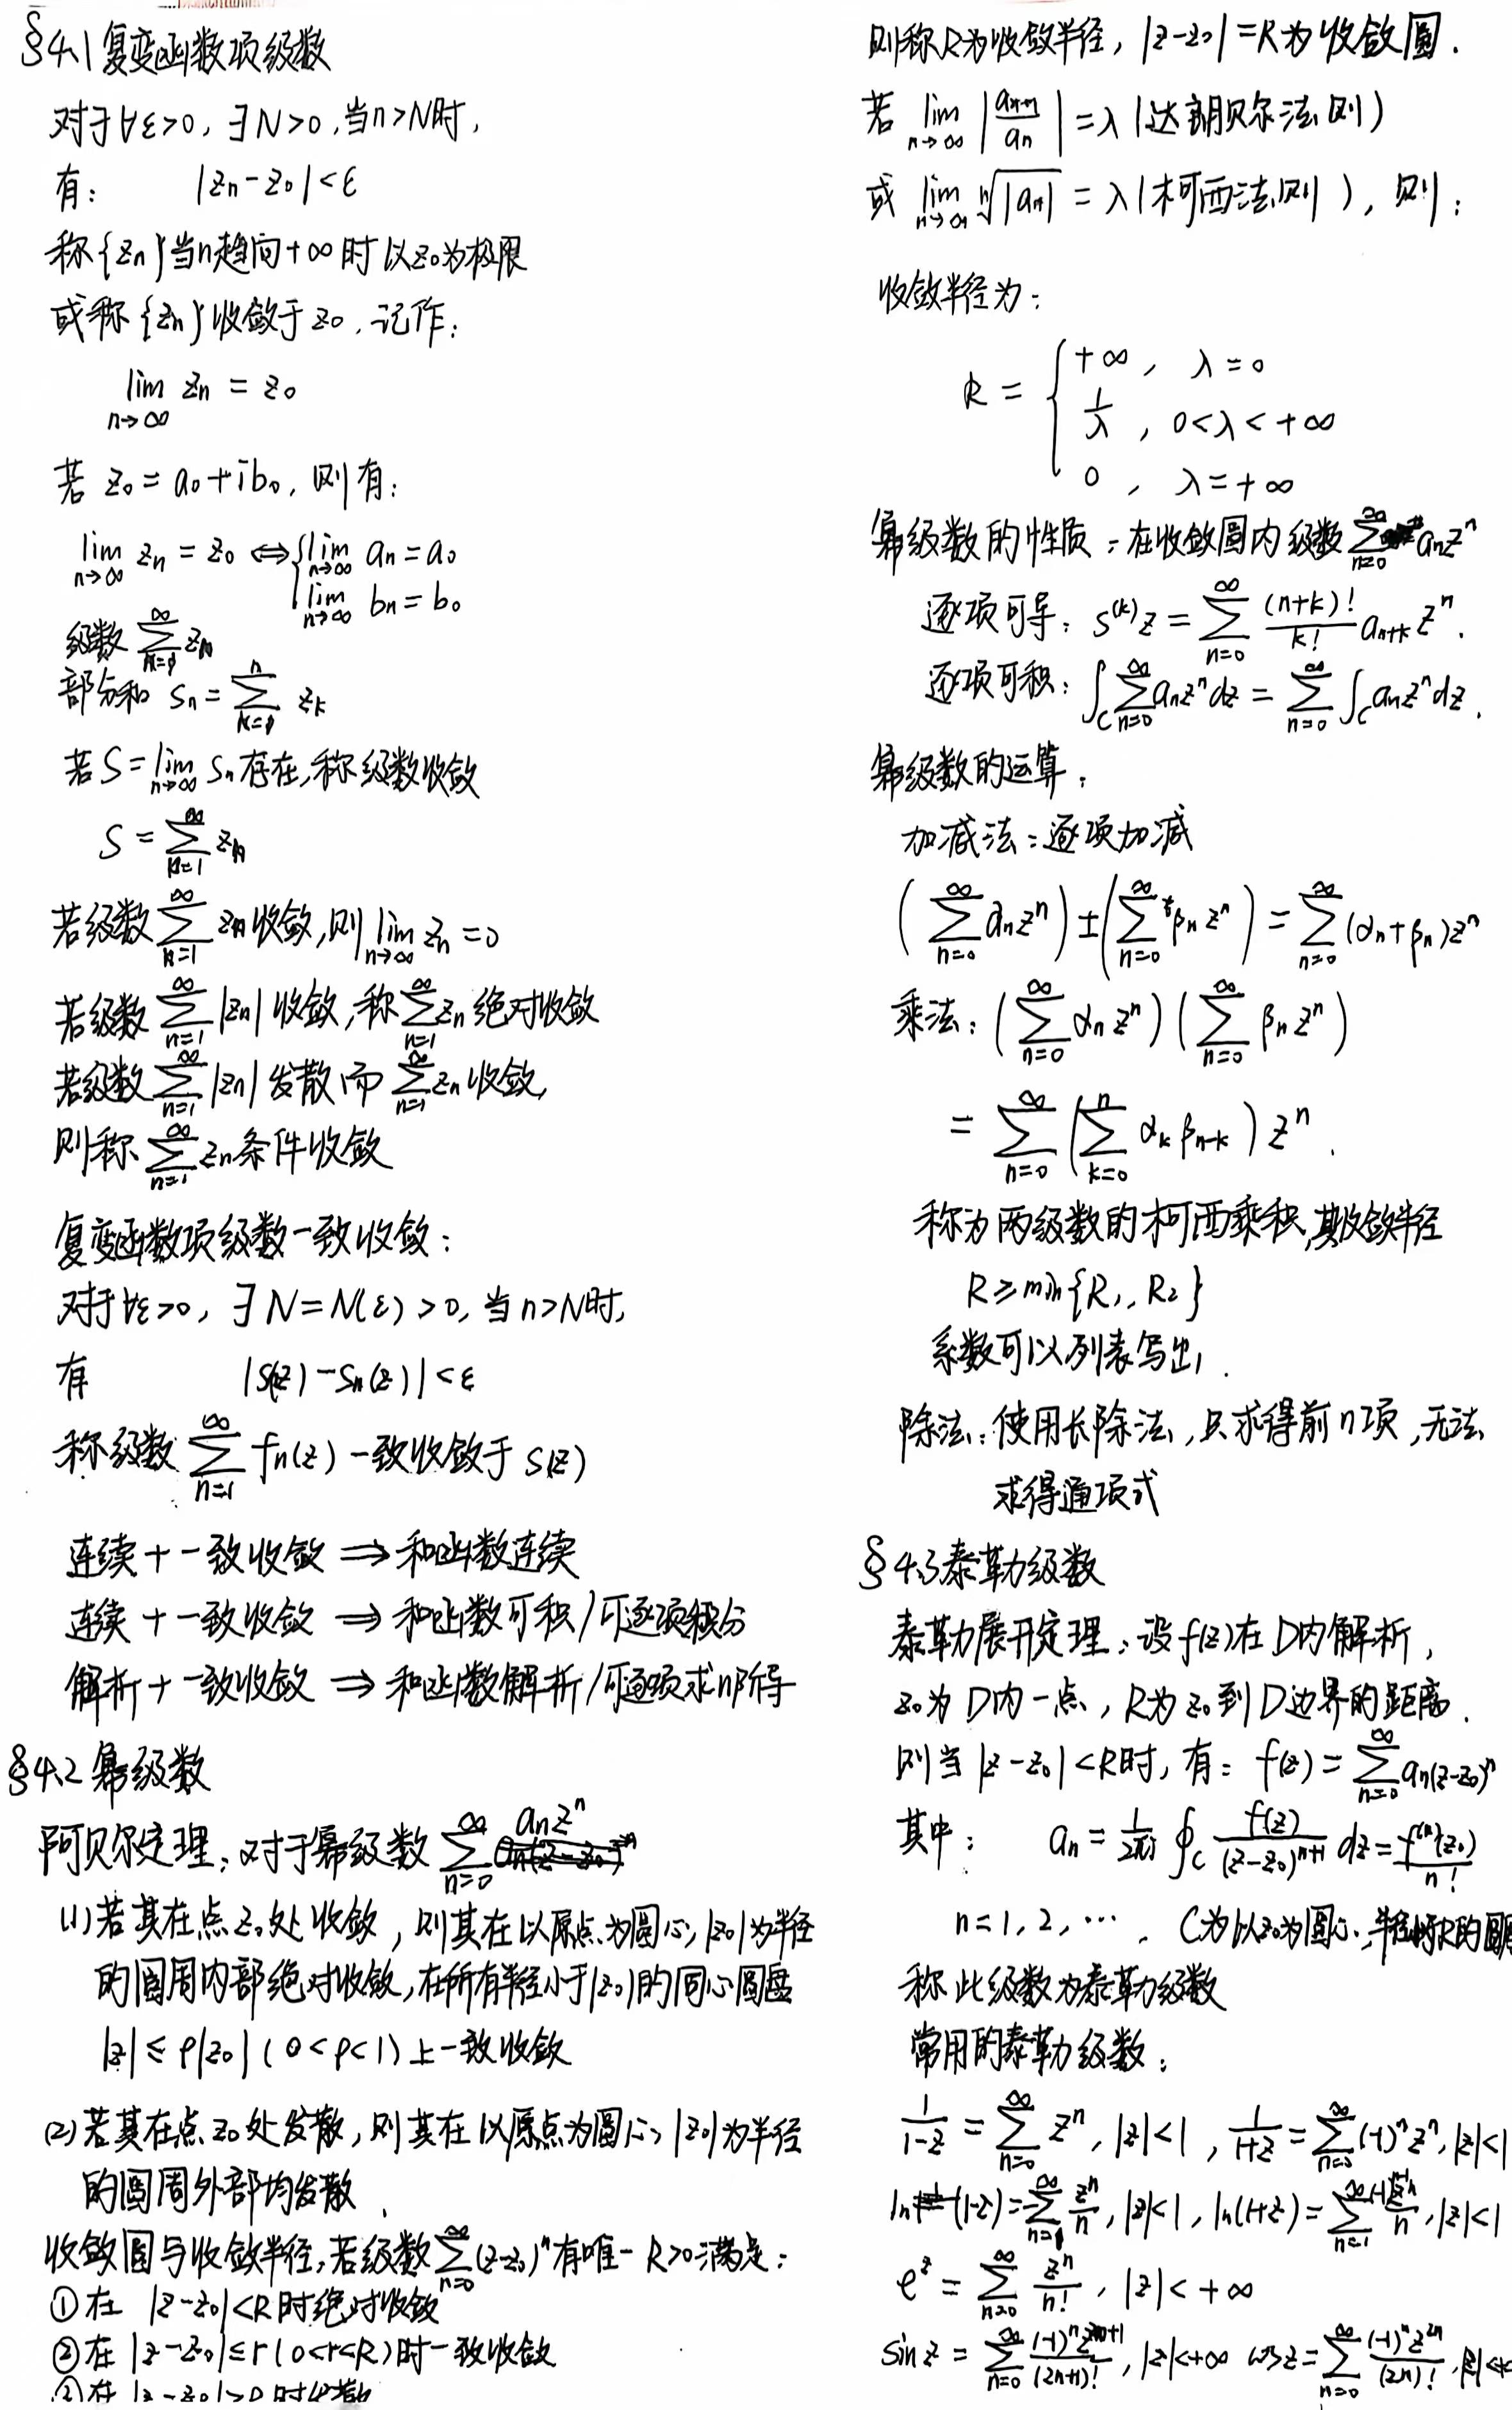 §4.1 复变函数项级数
对于∀ε>0, ∃N>0, 当n>N时,
有: |zn-z0|<ε
称{zn}当n趋向+∞时以z0为极限
或称{zn}收敛于z0, 记作:
lim n→∞ zn = z0
若 z0=a0+ib0, 则有:
lim n→∞ zn = z0 ⇔ { lim n→∞ an=a0
lim n→∞ bn=b0
级数 ∑ n=1 ∞ zn
部分和 Sn = ∑ k=1 n zk
若S=lim n→∞ Sn存在, 称级数收敛
S = ∑ n=1 ∞ zn
若级数 ∑ n=1 ∞ zn收敛, 则 lim n→∞ zn=0
若级数 ∑ n=1 ∞ |zn| 收敛, 称 ∑ n=1 ∞ zn 绝对收敛
若级数 ∑ n=1 ∞ |zn| 发散而 ∑ n=1 ∞ zn收敛,
则称 ∑ n=1 ∞ zn条件收敛
复变函数项级数一致收敛:
对于∀ε>0, ∃N=N(ε)>0, 当n>N时,
有 |S(z)-Sn(z)|<ε
称级数 ∑ n=1 ∞ fn(z) 一致收敛于 S(z)
连续+一致收敛 ⇒ 和函数连续
连续+一致收敛 ⇒ 和函数可积/可逐项积分
解析+一致收敛 ⇒ 和函数解析/可逐项求n阶导
§4.2 幂级数
阿贝尔定理: 对于幂级数 ∑ n=0 ∞ anz^n
(1)若其在点z0处收敛, 则其在以原点为圆心, |z0|为半径
的圆周内部绝对收敛, 在所有半径小于|z0|的同心圆盘
|z|≤ρ|z0| (0<ρ<1) 上一致收敛
(2)若其在点z0处发散, 则其在以原点为圆心, |z0|为半径
的圆周外部均发散.
收敛圆与收敛半径, 若级数 ∑ n=0 ∞ (z-z0)^n有唯一R>0满足:
①在 |z-z0|<R时绝对收敛
②在 |z-z0|≤r (0<r<R)时一致收敛
③在 |z-z0|>R时发散
则称R为收敛半径, |z-z0|=R为收敛圆.
若 lim n→∞ |an+1/an| = λ (达朗贝尔法则)
或 lim n→∞ n√|an| = λ (柯西法则), 则:
收敛半径为:
R = { +∞, λ=0
1/λ, 0<λ<+∞
0, λ=+∞
幂级数的性质: 在收敛圆内级数 ∑ n=0 ∞ anz^n
逐项可导: S^(k)z = ∑ n=0 ∞ (n+k)!/k! an+k z^n.
逐项可积: ∫C ∑ n=0 ∞ anz^n dz = ∑ n=0 ∞ ∫C anz^n dz.
幂级数的运算:
加减法: 逐项加减
(∑ n=0 ∞ αnz^n) ± (∑ n=0 ∞ βnz^n) = ∑ n=0 ∞ (αn+βn)z^n
乘法: (∑ n=0 ∞ αnz^n)(∑ n=0 ∞ βnz^n)
= ∑ n=0 ∞ (∑ k=0 n αkβn-k) z^n.
称为两级数的柯西乘积, 其收敛半径
R≥min{R1, R2}
系数可以列表写出.
除法: 使用长除法, 只求得前n项, 无法
求得通项式
§4.3 泰勒级数
泰勒展开定理: 设f(z)在D内解析,
z0为D内一点, R为z0到D边界的距离.
则当|z-z0|<R时, 有: f(z) = ∑ n=0 ∞ an(z-z0)^n
其中: an = 1/2πi ∮C f(z)/(z-z0)^n+1 dz = f^(n)(z0)/n!
n=1, 2, …. C为以z0为圆心, 半径为R的圆周
称此级数为泰勒级数
常用的泰勒级数:
1/1-z = ∑ n=0 ∞ z^n, |z|<1, 1/1+z = ∑ n=0 ∞ (-1)^n z^n, |z|<1
ln(1-z) = -∑ n=1 ∞ z^n/n, |z|<1, ln(1+z) = ∑ n=1 ∞ (-1)^n-1 z^n/n, |z|<1
e^z = ∑ n=0 ∞ z^n/n!, |z|<+∞
sin z = ∑ n=0 ∞ (-1)^n z^2n+1/(2n+1)!, |z|<+∞ cos z = ∑ n=0 ∞ (-1)^n z^2n/(2n)!, |z|<+